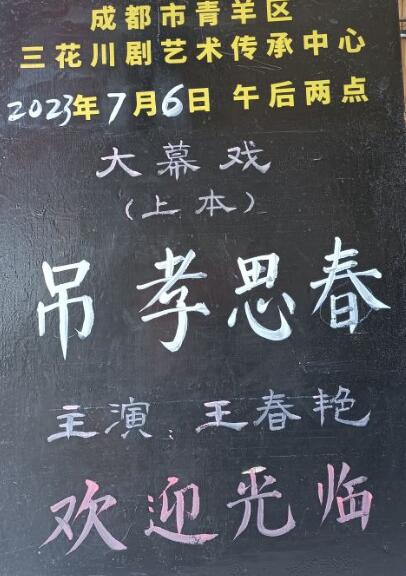 成都市青羊区
三花川剧艺术传承中心
2023年7月6日 午后两点
大幕戏
(上本)
吊孝思春
主演:王春艳
欢迎光临